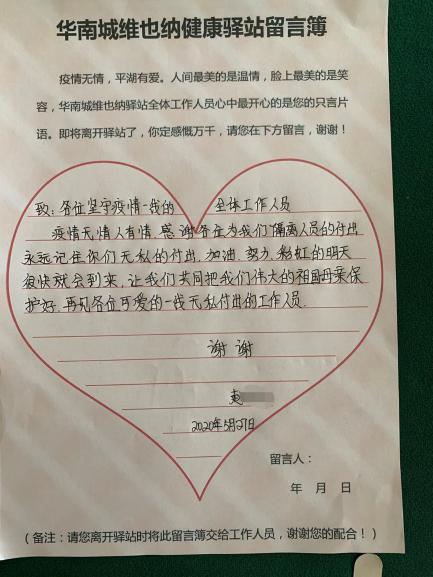 华南城维也纳健康驿站留言簿
疫情无情，平湖有爱。人间最美的是温情，脸上最美的是笑
容，华南城维也纳驿站全体工作人员心中最开心的是您的只言片
语。即将离开驿站了，你定感慨万千，请您在下方留言，谢谢！
致：各位坚守疫情一线的 全体工作人员
疫情无情人有情，感谢各位为我们隔离人员的付出
永远记住你们无私的付出，加油，努力，彩虹的明天
很快就会到来，让我们共同把我们伟大的祖国母亲保
护好，再见各位可爱的一线无私付出的工作人员
谢谢
2020年5月27日
留言人：
年 月 日
（备注：请您离开驿站时将此留言簿交给工作人员，谢谢您的配合！）